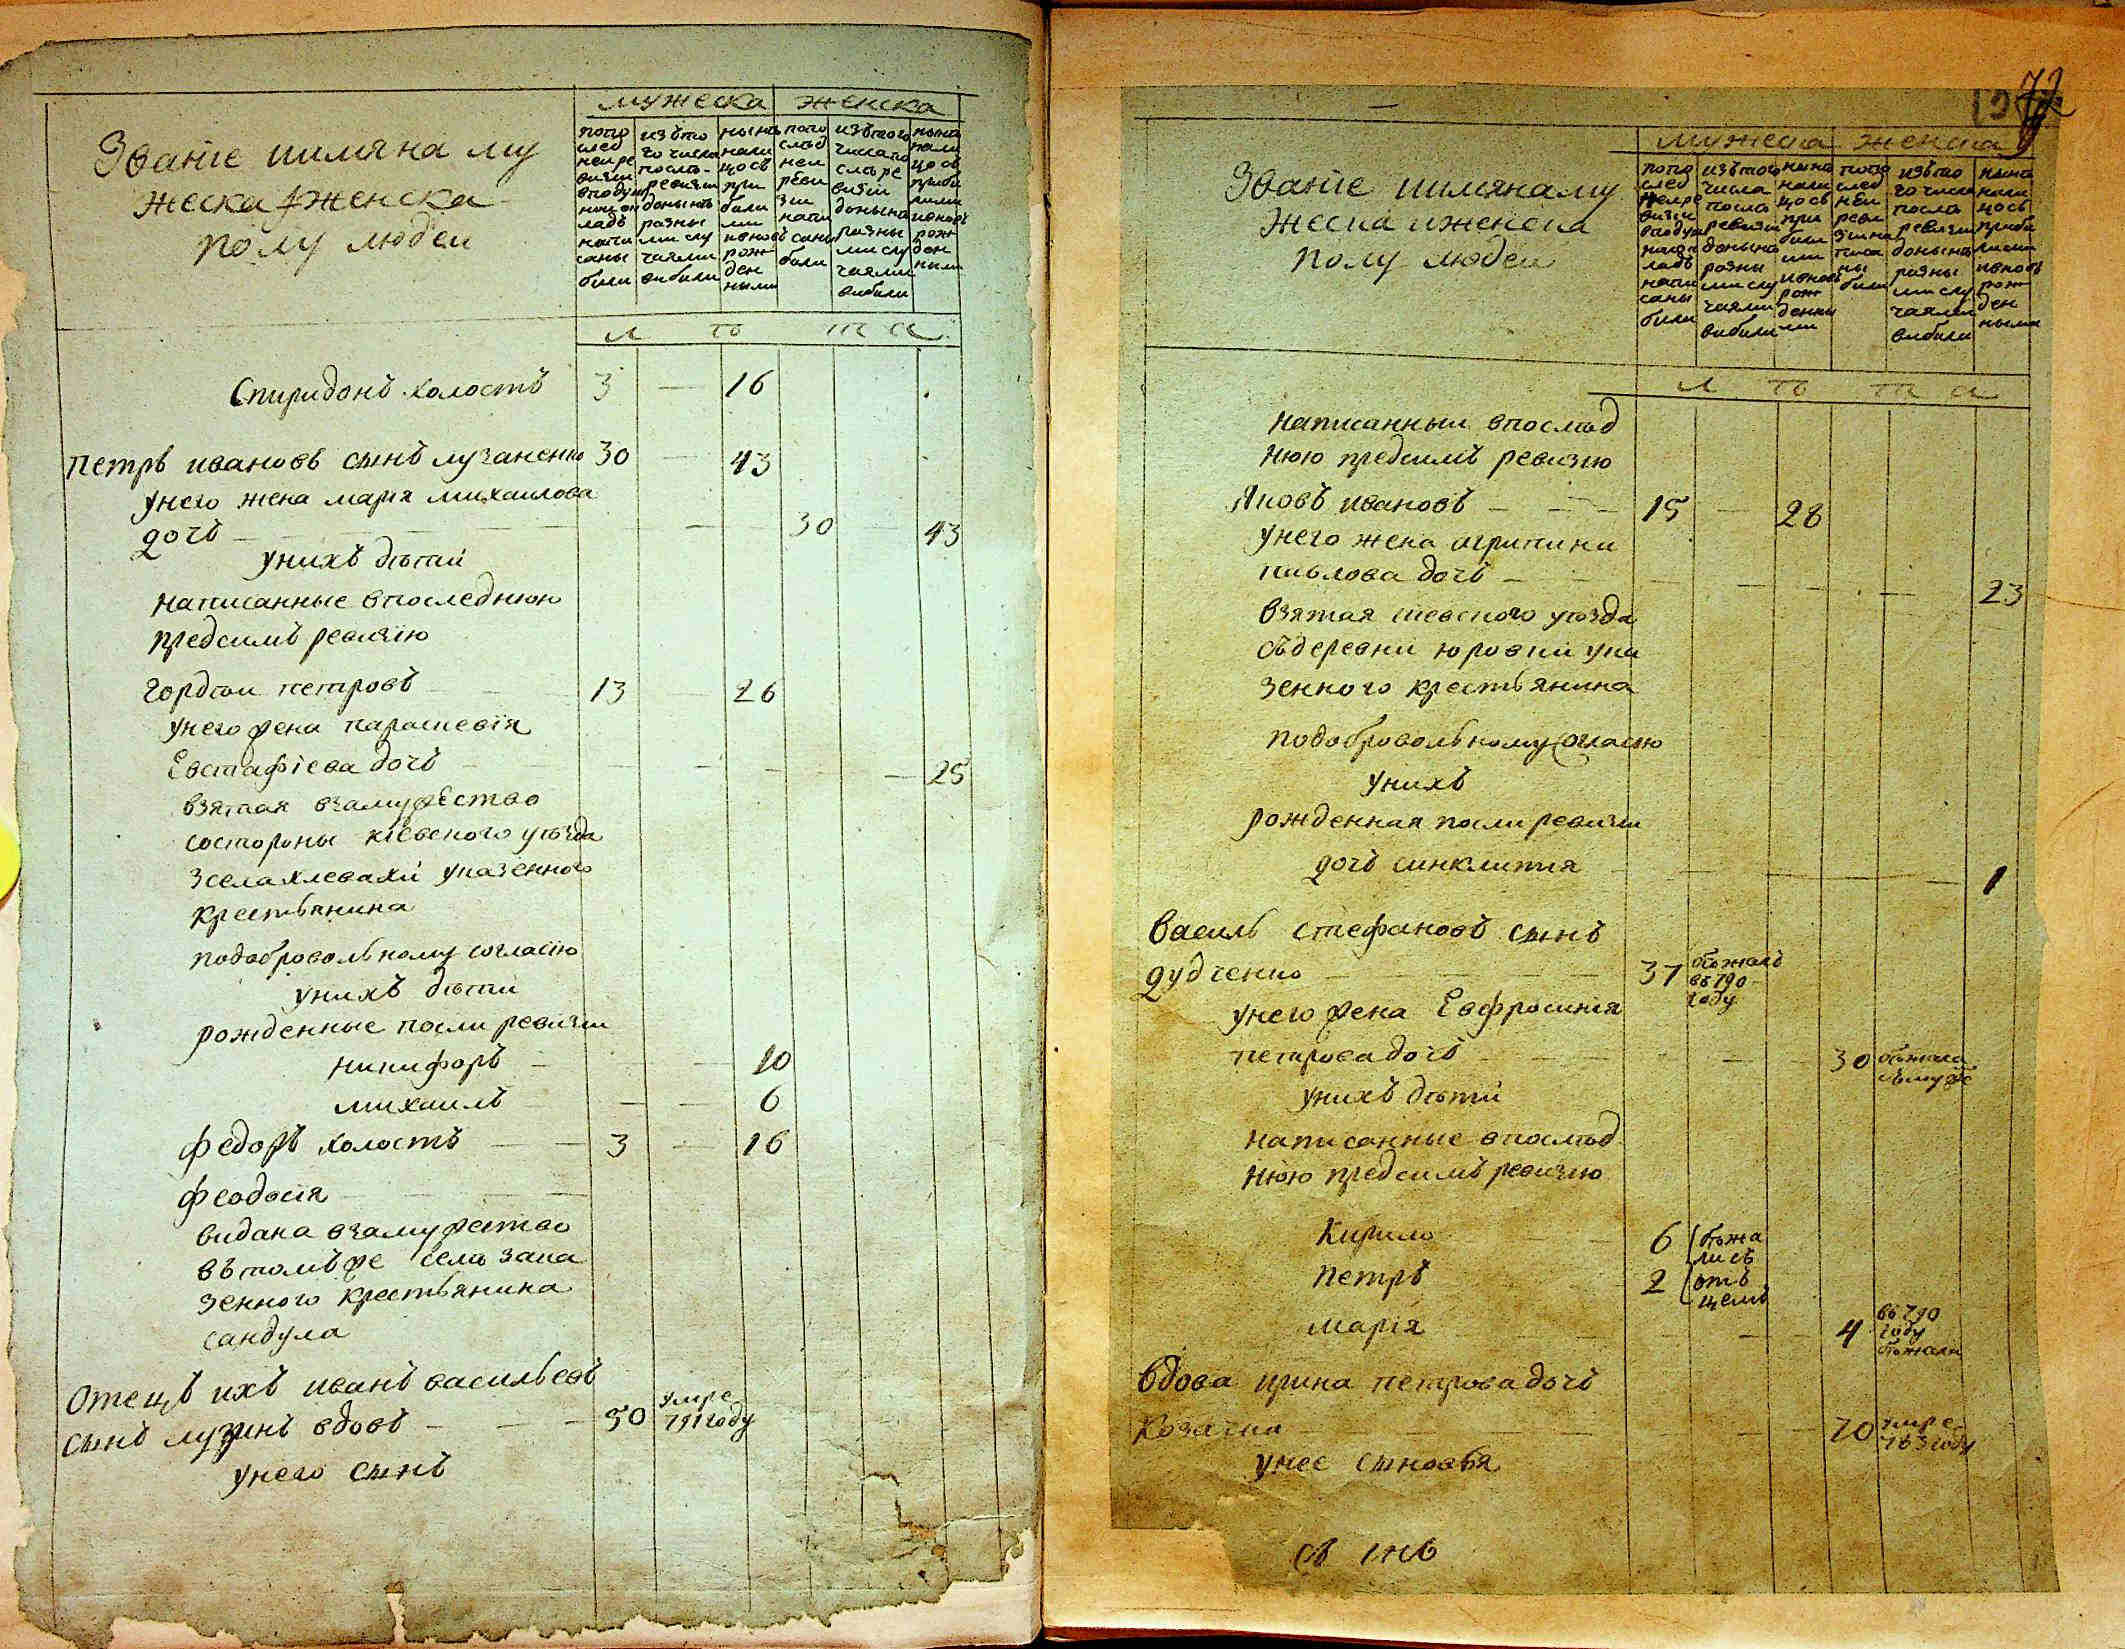 мужеска женска
Званіе иимяна му
жеска иженска
полу людеи
попо
след
неире
визіи
вподуш
ном ок
ладѣ
напи
саны
били
изъто
го числа
послѣ-
ревизіи
донынѣ
разны
ми слу
чаями
вибили
нынѣ
нали
цосъ
при
били
ми
ивновь
рож
ден
ными
попо
слѣд
неи
реви
зіи
напи
саны
били
изътого
числапо
слѣре
визіи
донынѣ
разны
ми слу
чаями
вибили
нынѣ
нали
цосъ
приби
лими
ивновъ
рож
ден
ними
л ѣ т а
Спиридонъ холостъ 3 — 16
Петръ ивановъ сынъ лузаненко 30 — 43
унего жена марія михаилова
дочъ — 30 — 43
унихъ дѣти
написанные впоследнюю
предсимъ ревизію
Гордѣи петровъ 13 — 26
унего жена парасковія
Евстафіева дочъ — 25
взятая взамужство
состороны кіевского уѣзда
зсела хлевахи указенного
крестьянина
подобровольному согласію
унихъ дѣти
рожденные посли ревизіи
никифоръ — 10
михаилъ — 6
федоръ холостъ — 3 — 16
феодосія
видана взамужество
втомъже селѣ зака
зенного крестьянина
сандула
Отецъ ихъ иванъ васильевъ
сынъ лузинъ вдовъ — 50 умре
791 году
унего сынъ
72
мужеска женска
Званіе иимянаму
жеска иженска
полу людеи
попо
след
неире
визіи
вподуш
номок
ладѣ
напи
саны
били
изътого
числа
послѣ
ревизіи
донынѣ
разны
ми слу
чаями
вибили
нынѣ
нали
цосъ
при
били
ми
ивновъ
рож
денны
ми
попо
след
неи
реви
зіи на
писа
ны
били
изъто
го числа
послѣ
ревизіи
донынѣ
разны
ми слу
чаями
вибили
нынѣ
нали
цосъ
приби
лими
ивновъ
рож
ден
ными
л ѣ т а
написанныи впослѣд
нюю предсимъ ревизію
Яковъ ивановъ — 15 — 28
унего жена агрипина
павлова дочъ — 23
взятая кіевского уѣзда
съдеревни юровки ука
зенного крестьянина
подобровольному согласію
унихъ
рожденная посли ревизіи
дочъ синклитія — 1
Василь стефановъ сынъ
дудченко 37 бѣжалъ
въ 790
году
унего жена Евфросинія
петрова дочъ — 30 бѣжала
съмуже
унихъ дѣти
написанные впослѣд
нюю предсимъ ревизію
Кирило 6 бѣжа
лисъ
Петръ 2 отъ
цемъ
марія — 4 въ 790
году
бѣжала
Вдова ирина петрова дочъ
Козачка — 70 умре
783 году
унее сыновья